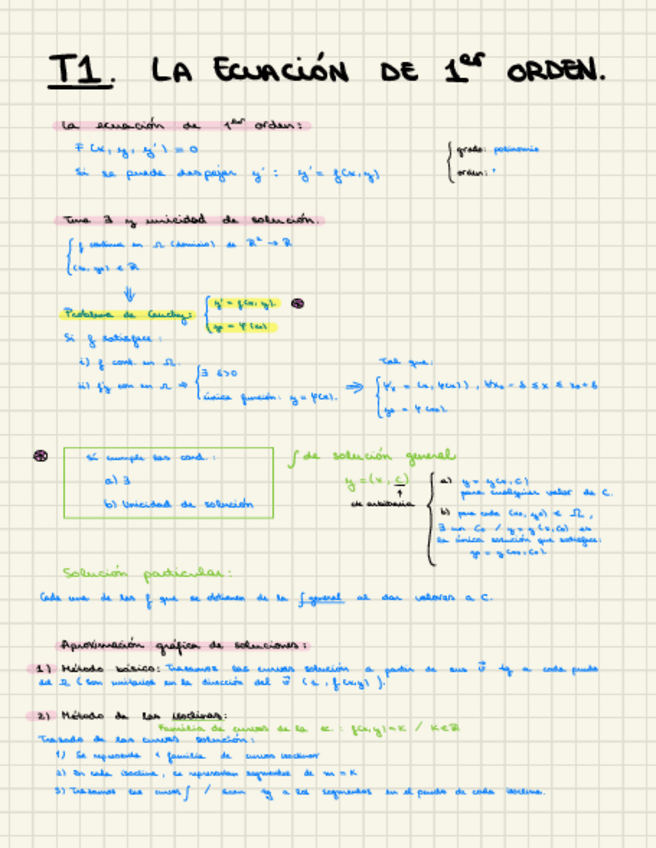 T1. LA ECUACIÓN DE 1er ORDEN.
La ecuación de 1er orden:
F(x, y, y') = 0
Si se puede despejar y' : y' = f(x,y)
grado: polinomio
orden: '
Tma ∃ y unicidad de solución.
f continua en Ω (dominio) de R² → R
Problema de Cauchy: y' = f(x, y).
Si f satisface:
i) f cont. en Ω.
ii) f'y con en Ω ⇒
∃ δ>0
única función: y = φ(x).
⇒ Tal que:
, ∀x₀ - δ ≤ x ≤ x₀ + δ
Si cumple las cond.:
a) ∃
b) Unicidad de solución
∫ de solución general
y = (x, C)
cte arbitraria
a) y = y(x, C)
para cualquier valor de C.
b) para cada (x₀, y₀) ∈ Ω,
∃ un C₀ / y = y(x, C₀) es
la única solución que satisface:
y₀ = y(x₀, C₀).
Solución particular:
Cada una de las f que se obtienen de la f general al dar valores a C.
Aproximación gráfica de soluciones:
1) Método básico: Trazamos las curvas solución a partir de sus v⃗ tg a cada punto
de Ω (son unitarios en la dirección del v⃗ (1, f(x,y)).
2) Método de las isoclinas:
Familia de curvas de la ec.: f(x,y)=K / K∈R
Trazado de las curvas solución:
1) Se representa 1 familia de curvas isoclinas
2) En cada isoclina, se representan segmentos de m = K
3) Trazamos las curvas ∫ / sean tg a los segmentos en el punto de cada isoclina.